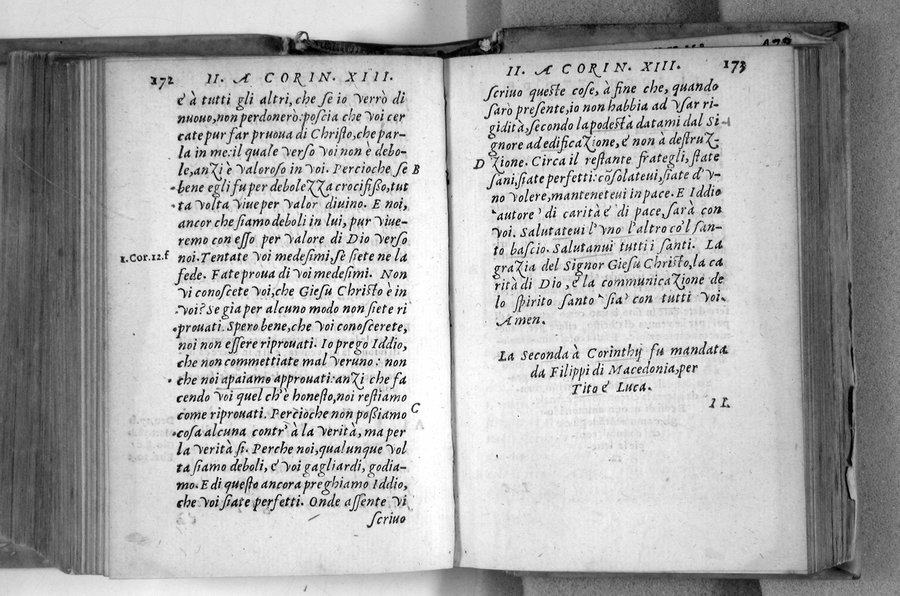 172 II. A CORIN. XIII.
é à tutti gli altri, che se io verrò di
nuouo, non perdonerò: poscia che voi cer
cate pur far pruoua di Christo, che par-
la in me: il quale verso voi non è debo-
le, anzi è valoroso in voi. Percioche se B
bene egli fu per debolezza crocifisso, tut
ta volta viue per valor diuino. E noi,
ancor che siamo deboli in lui, pur viue-
remo con esso per valore di Dio verso
1. Cor. 11. f noi. Tentate voi medesimi, se siete ne la
fede. Fate proua di voi medesimi. Non
vi conoscete voi, che Giesu Christo è in
voi? Se gia per alcuno modo non siete ri
prouati. Spero bene, che voi conoscerete,
noi non essere riprouati. Io prego Iddio,
che non commettiate mal veruno: non
che noi apaiamo approuati: anzi che fa
cendo voi quel ch'è honesto, noi restiamo
come riprouati. Percioche non possiamo C
cosa alcuna contr' à la verità, ma per
la verità si. Perche noi, qualunque vol
ta siamo deboli, é voi gagliardi, godia-
mo. E di questo ancora preghiamo Iddio,
che voi siate perfetti. Onde assente vi
scriuo
II. A CORIN. XIII. 173
scriuo queste cose, à fine che, quando
sarò presente, io non habbia ad vsar ri-
gidità, secondo la podestà datami dal Si
gnore ad edificazione, é non à destruz-
D zione. Circa il restante frategli, state
sani, siate perfetti: cõsolateui, siate d'v-
no volere, manteneteui in pace. E Iddio
autore di carità é di pace, sarà con
voi. Salutateui l'vno l'altro co'l san-
to bascio. Salutanui tutti i santi. La
grazia del Signor Giesu Christo, la ca
rità di Dio, é la communicazione de
lo spirito santo sia con tutti voi.
Amen.
La Seconda à Corinthij fu mandata
da Filippi di Macedonia, per
Tito é Luca.
II.